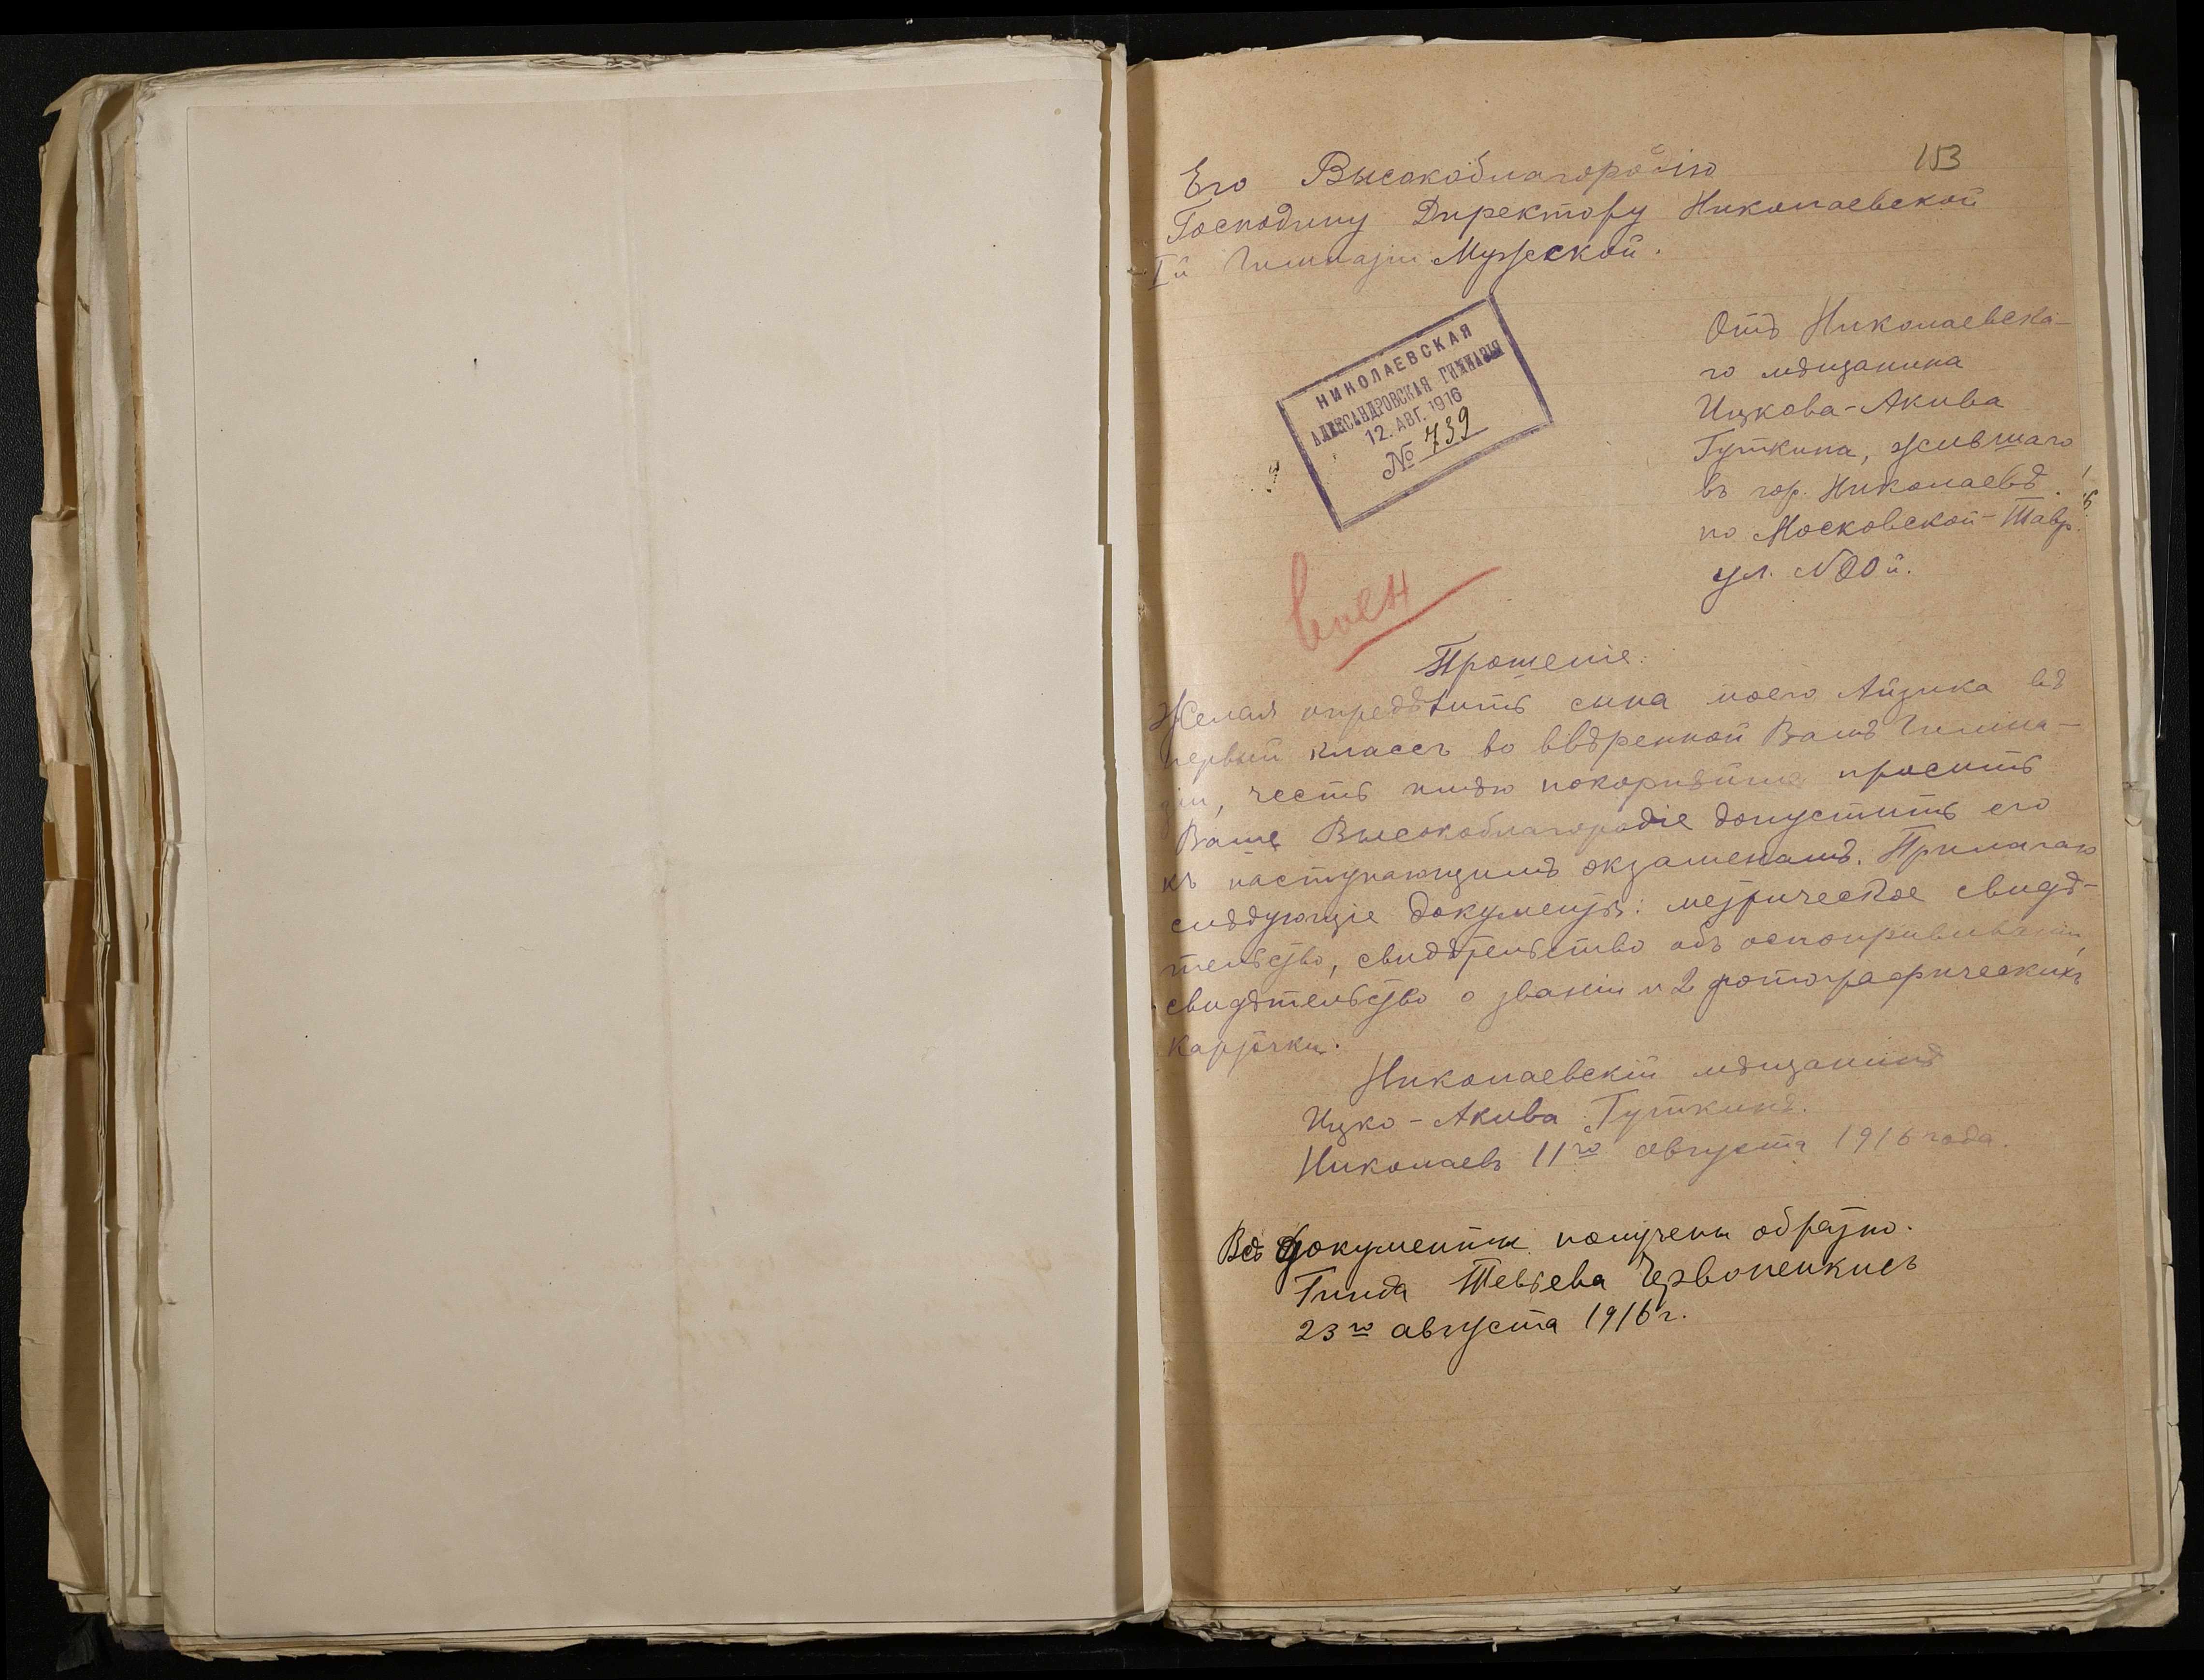 153
Его Высокоблагородію
Господину Директору Николаевской
Iй Гимназіи Мужской.
НИКОЛАЕВСКАЯ
АЛЕКСАНДРОВСКАЯ ГИМНАЗІЯ
12. АВГ. 1916
№ 739
Отъ Николаевска-
го мѣщанина
Ицкова-Акива
Гуткина, жившаго
въ гор. Николаевѣ
по Московской-Тавр.
ул.
воен
Прошеніе.
Желая опредѣлить сына моего Айзика въ
первый классъ во ввѣренной Вамъ Гимна-
зіи, честь имѣю покорнѣйше просить
Ваше Высокоблагородіе допустить его
къ наступающимъ экзаменамъ. Прилагаю
слѣдующіе документы: метрическое свидѣ-
тельство, свидѣтельство объ оспопрививаніи,
свидѣтельство о званіи и 2 фотографическихъ
карточки.
Николаевскій мѣщанинъ
Ицко-Акива Гуткинъ.
Николаевъ 11го августа 1916 года.
Всѣ документы получены обратно.
Тевьева
23го августа 1916 г.